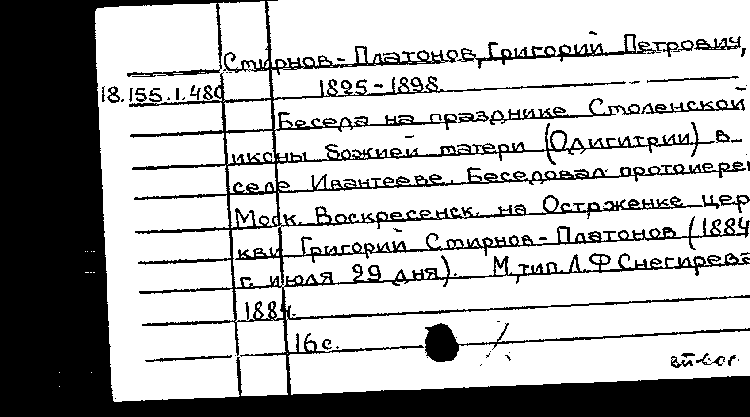 Смирнов-Платонов, Григорий Петрович,
18.155.1.480 1825-1898.
Беседа на празднике Смоленской
иконы Божией матери (Одигитрии) в
селе Ивантееве. Беседовал протоиерей
Моск. Воскресенск. на Остоженке цер
кви Григорий Смирнов-Платонов (1884
г. июля 29 дня). М, тип. Л.Ф Снегирева
1884.
16 с.